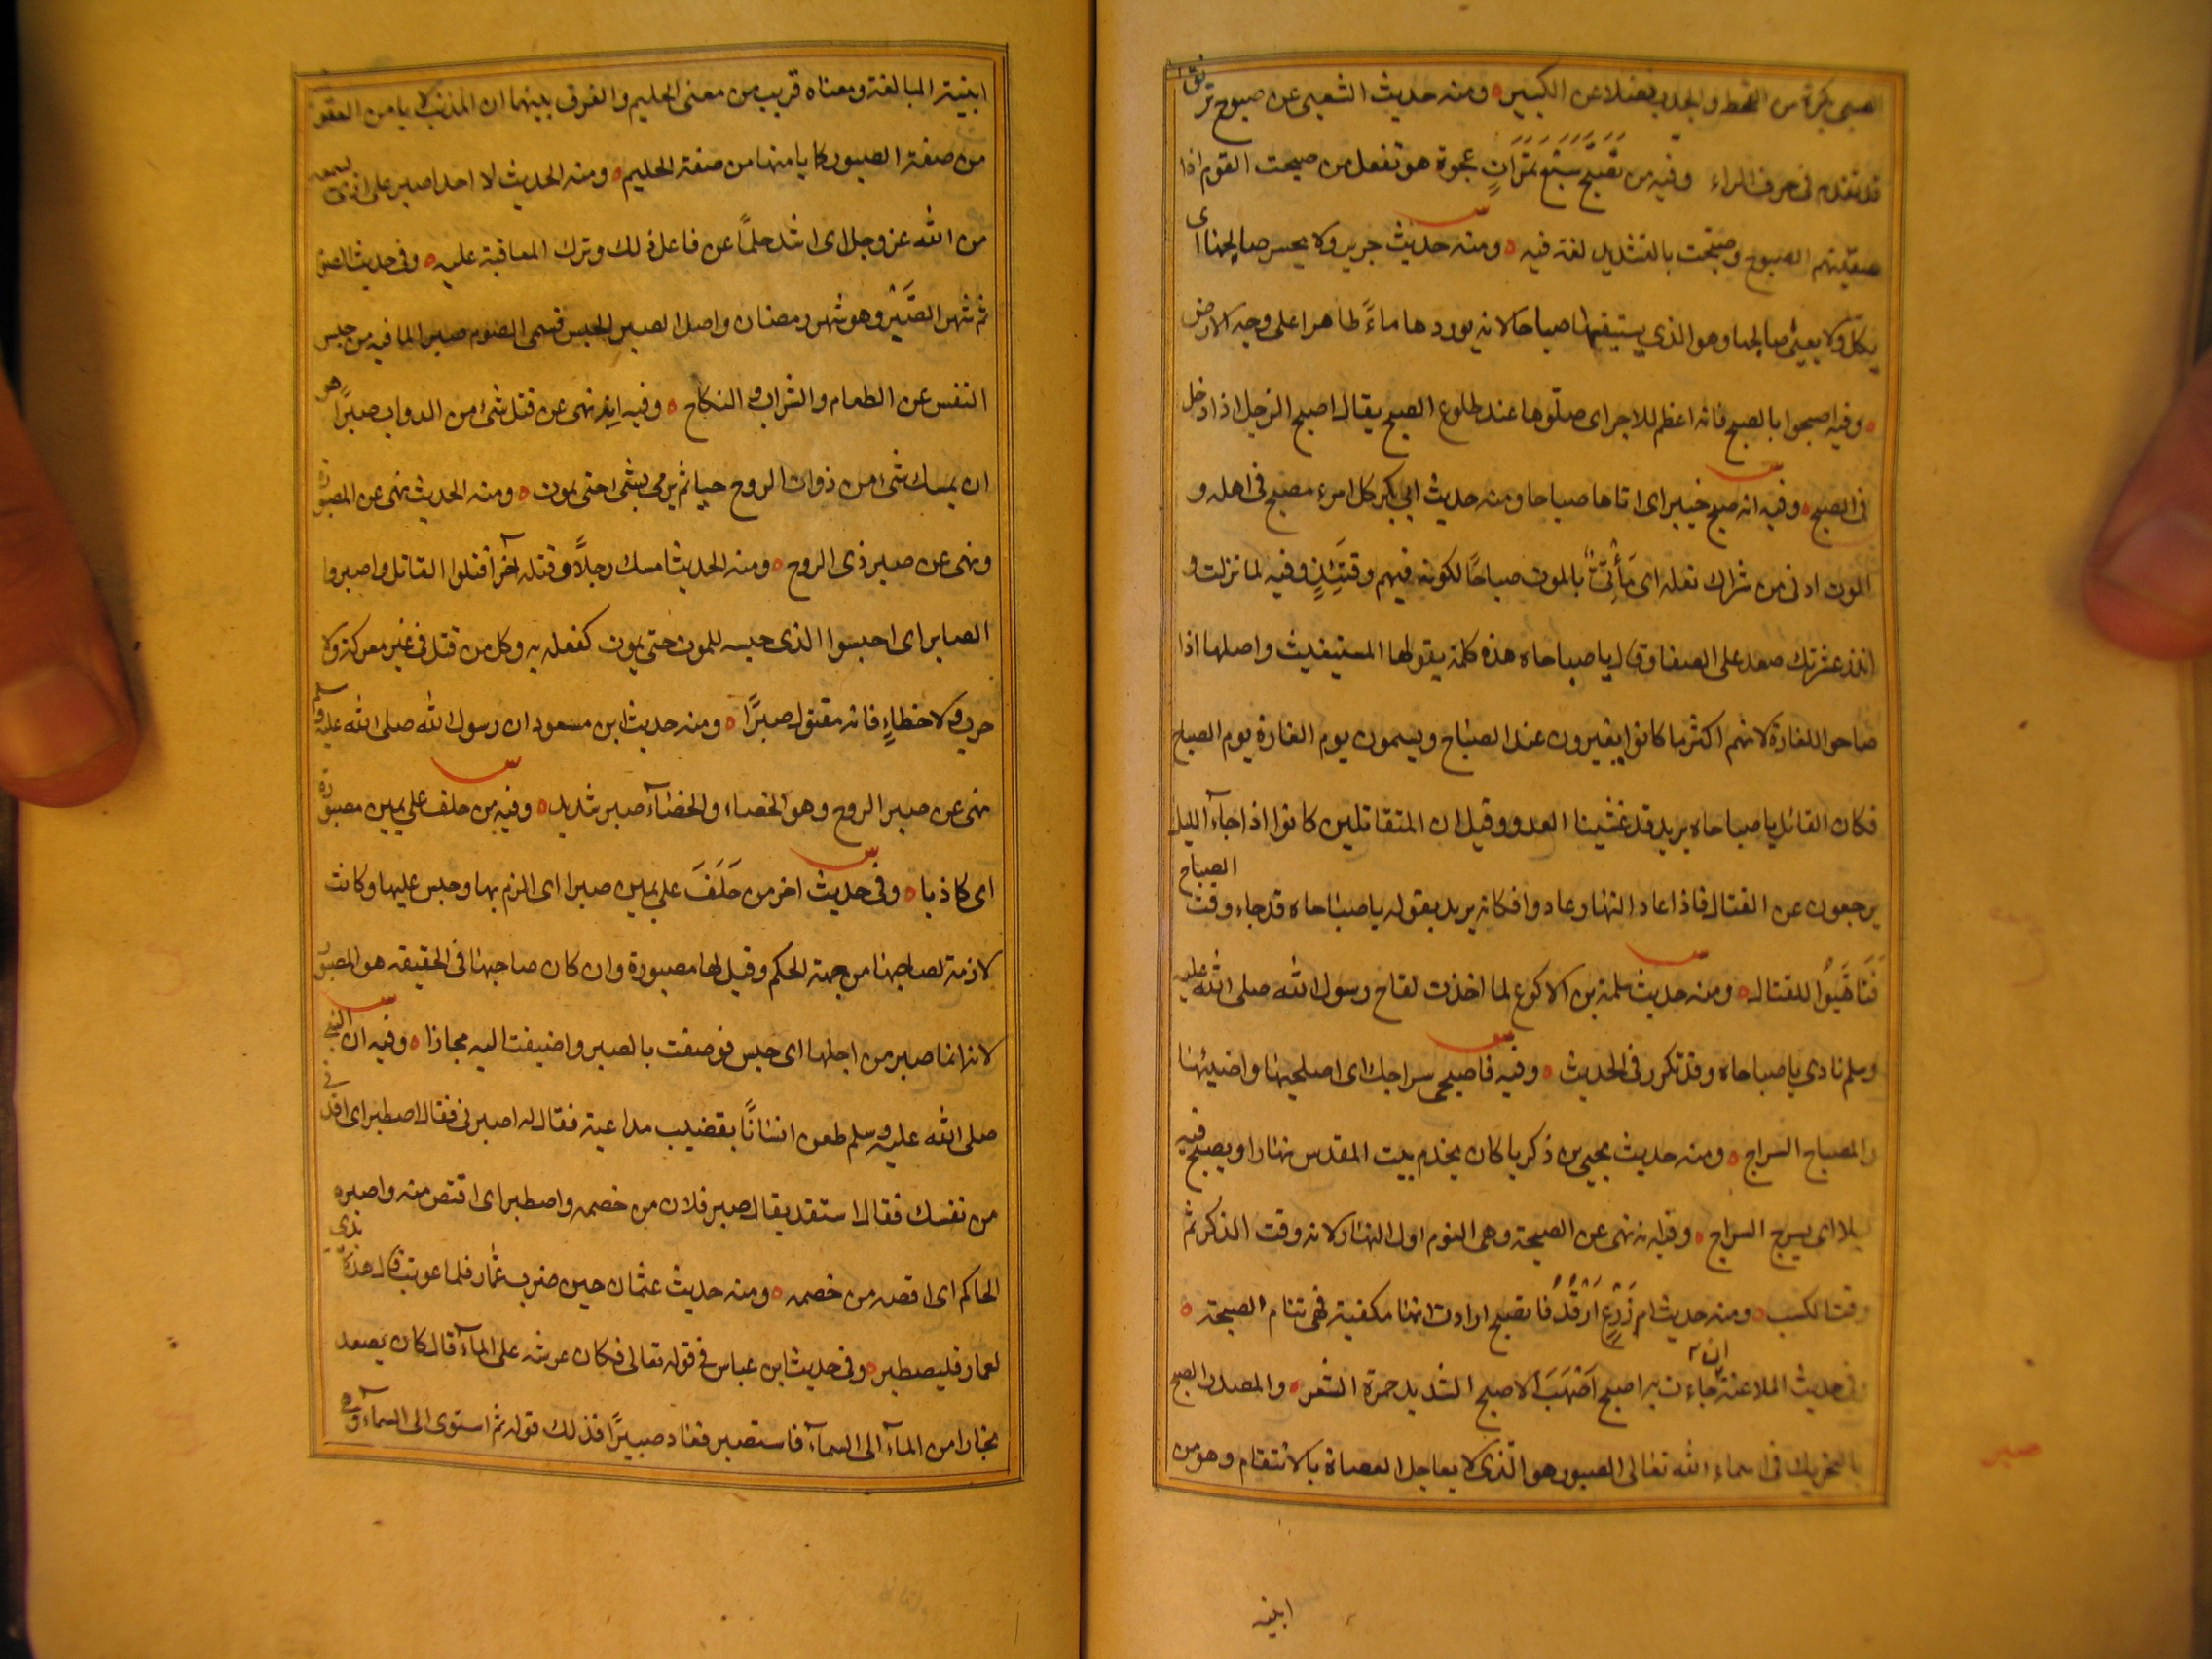 الصبى بكرة من القحط والجدب فضلا عن الكبير ه ومنه حديث الشعبى عن صبوح ترقق
قد تقدم فى حرف الراء وفيه من تَصَبَّحَ سَبْعَ تَمَرَاتٍ عجوة هو تفعل من صبحت القوم اذا
سقيتهم الصبوح وصبّحت بالتشديد لغة فيه ه ومنه حديث جرير ولا يحسر صابحها اى
يكل ولا يعيى صابحها وهو الذي يسقيها صباحا لانه يوردها ماءً ظاهرا على وجه الارض
ه وفيه اصبحوا بالصبح فانه اعظم للاجر اى صلّوها عند طلوع الصبح يقال اصبح الرجل اذا دخل
فى الصبح ه وفيه انه صبح خيبر اى اتاها صباحا ومنه حديث ابى بكر كل امرء مصبح فى اهله و
الموت ادنى من شراك نعله اى مَأْتِىّ بالموت صباحًا لكونه فيهم وقتئذٍ وفيه لما نزلت و
انذر عشرتك صعد على الصفا وقال يا صباحاه هذه كلمة يقولها المستغيث واصلها اذا
صاحوا للغارة لانهم اكثر ما كانوا يغيرون عند الصباح ويسمون يوم الغارة يوم الصباح
فكان القائل يا صباحاه يريد قد غشينا العدو وقيل ان المتقاتلين كانوا اذا جآء الليل
يرجعون عن القتال فاذا عاد النهار عادوا فكانه يريد بقوله يا صباحاه قد جاء وقت الصباح
فَتَاهَّبُوا للقتال ه ومنه حديث سلمة بن الاكوع لما اخذت لقاح رسول الله صلى الله عليه
وسلم نادى يا صباحاه وقد تكرر فى الحديث ه وفيه فاصبحى سراجك اى اصلحيها واضيئيها
والمصباح السراج ه ومنه حديث يحيى بن ذكريا كان يخدم بيت المقدس نهارا ويصبح فيه
ليلا اى يسرج السراج ه وفيه انه نهى عن الصبحة وهى النوم اول النهار لانه وقت الذكر ثم
وقت الكسب ه ومنه حديث ام زَرْعٍ اَرْقُدُ فاتصبح ارادت انها مكفية فهى تنام الصبحة ه
وفى حديث الملاعنة ان جاءت به اصبح اَصْهَبَ الاصبح الشديد حمرة الشعر ه والمصدر الصبح
بالتحريك فى اسماء الله تعالى الصبور هو الّذى لا يعاجل العصاة بالانتقام وهو من
صبر
ابنيه
ابنية المبالغة ومعناه قريب من معنى الحليم والفرق بينهما ان المذنب لا يامن العقوبة
من صفة الصبور كما يامنها من صفة الحليم ه ومنه الحديث لا احد اصبر على اذى يسمعه
من الله عز وجل اى اشد حلمًا عن فاعل ذلك وترك المعاقبة عليه ه وفى حديث الصوم
ثم شهر الصَّبْر وهو شهر رمضان واصل الصبر الحبس فسمى الصوم صبرا لما فيه من حبس
النفس عن الطعام والشراب والنكاح ه وفيه انه نهى عن قتل شئ من الدواب صبرًا هو
ان يمسك شئ من ذوات الروح حيا ثم يرمى بشى احتى يموت ه ومنه الحديث نهى عن المصبورة
ونهى عن صبر ذى الروح ه ومنه الحديث امسك رجلًا وقتله آخر اقتلوا القاتل واصبروا
الصابر اى احبسوا الذى حبسه للموت حتى يموت كفعله به وكل من قتل فى غير معركة ولا
حرب ولا خطاءٍ فانه مقتول صبرًا ه ومنه حديث ابن مسعود ان رسول الله صلى الله عليه وسلم
نهى عن صبر الروح وهو الخصاء والخصآء صبر شديد ه وفيه من حلف على يمين مصبورة
اى كاذبا ه وفى حديث اخر من حَلَفَ على يمين صبرا اى الزم بها وحبس عليها وكانت
لازمة لصاحبها من جهة الحكم وقيل لها مصبورة وان كان صاحبها فى الحقيقة هو المصبور
لانه انما صبر من اجلها اى حبس فوصفت بالصبر واضيفت اليه مجازا ه وفيه ان النبى
صلى الله عليه وسلم طعن انسانًا بقضيب مداعبة فقال له اصبرنى فقال اصطبر اى اقدنى
من نفسك فقال استقد يقال صبر فلان من خصمه واصطبر اى اقتص منه واصبره
الحاكم اى اقصه من خصمه ه ومنه حديث عثمان حين ضرب عمار فلما عوتب قال هذه يدى
لعمار فليصطبر ه وفى حديث ابن عباس فى قوله تعالى فكان عرشه على المآء قال كان يصعد
بخارا من المآء الى السمآء فاستصبر فعاد صبيرًا فذلك قوله ثم استوى الى السمآء وهى